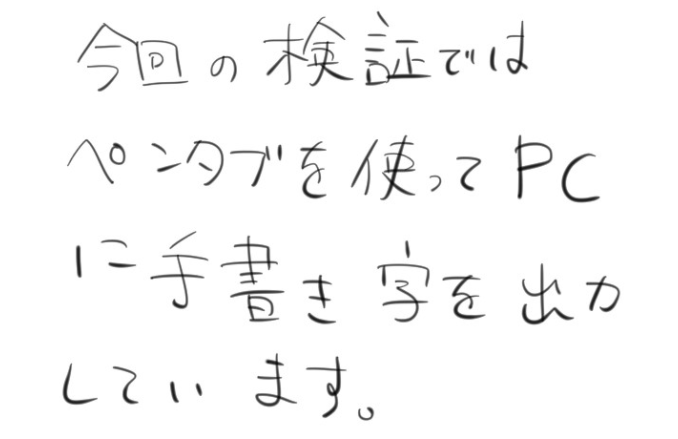 今回の検証では
ペンタブを使ってPC
に手書き字を出力
しています。